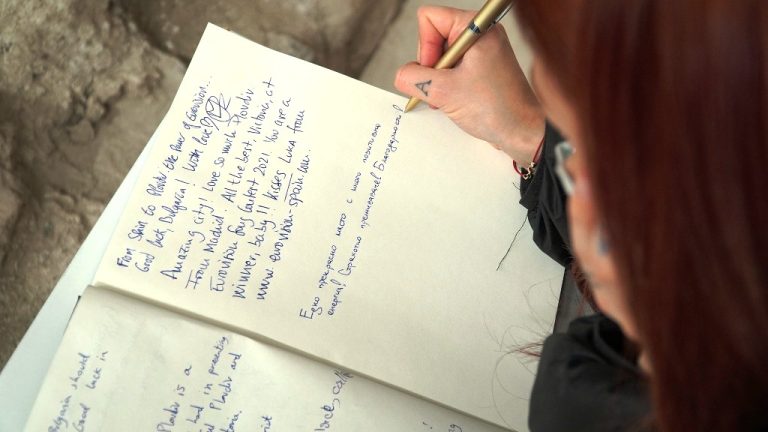 From Spain to Plovdiv the Power of Eurovision...
Good luck, Bulgaria! With love!
Amazing city! Love so much Plovdiv
From Madrid. All the best, Victoria, at
Eurovision Song Contest 2021. You are a
winner, baby!! Kisses Luka from
www.eurovision-spain.com..
Едно прекрасно място с много позитивна
енергия! Страхотно преживяване!
A
should
Good luck in
Plovdiv is a
had in presenting
Plovdiv and